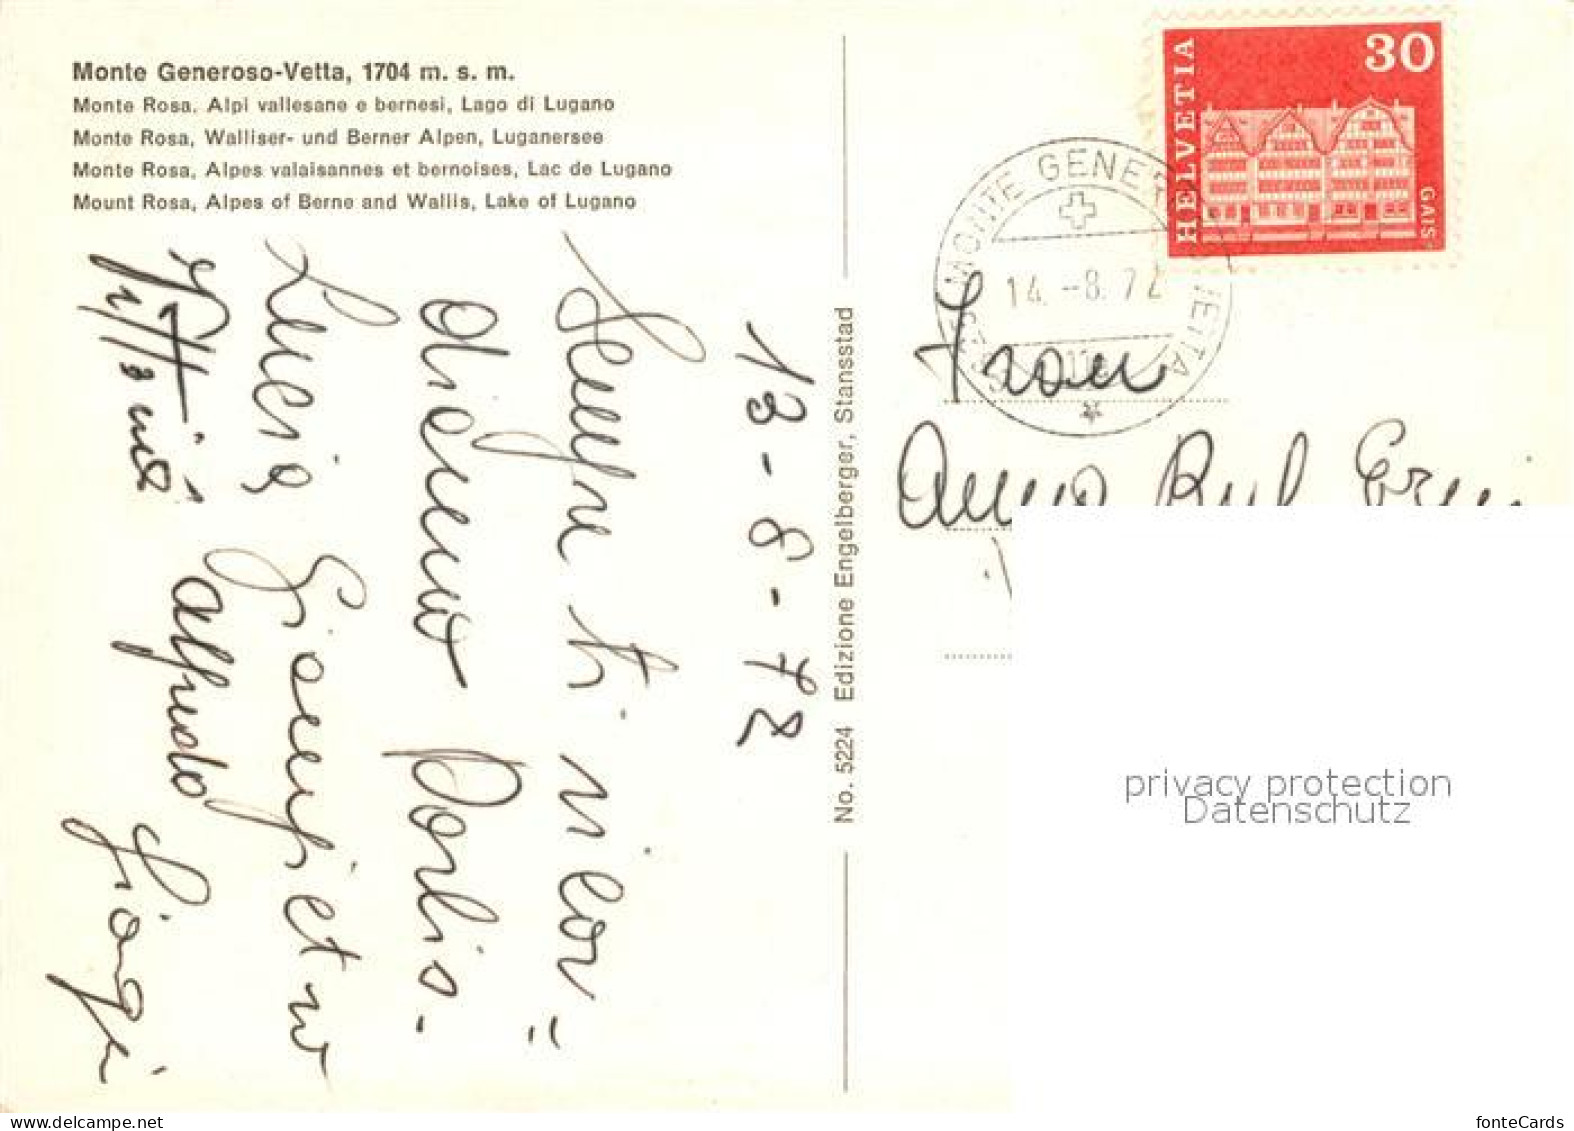 Monte Generoso-Vetta, 1704 m. s. m.
Monte Rosa. Alpi vallesane e bernesi, Lago di Lugano
Monte Rosa, Walliser- und Berner Alpen, Luganersee
Monte Rosa, Alpes valaisannes et bernoises, Lac de Lugano
Mount Rosa, Alpes of Berne and Wallis, Lake of Lugano
13-8-72
Sempre ti ricor=
diamo
Lucia
alfredo
No. 5224 Edizione Engelberger, Stansstad
HELVETIA
30
GAIS
MONTE GENEROSO VETTA
14.-8.72
Frau
Anna
privacy protection
Datenschutz
fonteCards